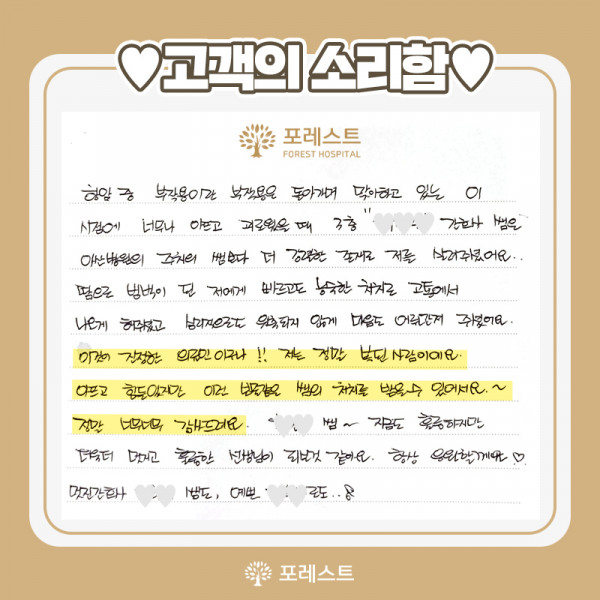 ♥고객의 소리함♥
포레스트
FOREST HOSPITAL
항암 중 부작용이란 부작용은 돌아가며 막아하고 있는 이
시점에 너무나 아프고 괴로웠을때 3층 " 간호사 쌤은
아산병원의 주치의 쌤보다 더 강력한 존재로 저를 살려주셨어요..
땀으로 범벅이 된 저에게 빠르고도 능숙한 처치로 고통에서
나오게 해주셨고 심리적으로도 위축되지 않게 마음도 어루만져 주셨어요.
이것이 진정한 의료인 이구나 !! 저는 정말 복된 사람이에요.
아프고 힘들었지만 이런 쌤의 처치를 받을수 있어서요.~
정말 너무너무 감사드려요. 쌤~ 지금도 훌륭하지만
더욱더 멋지고 훌륭한 선생님이 되실것 같아요. 항상 응원할게요♡.
멋진간호사 쌤도, 예쁜 로도..
포레스트